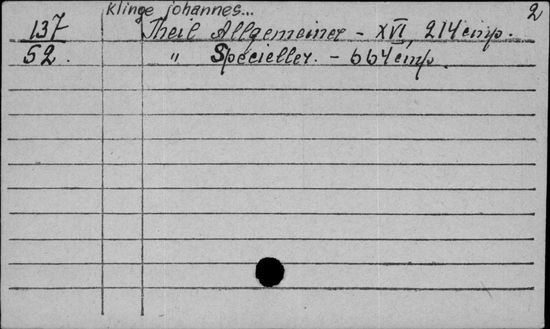 Klinge Johannes... 2
137 Theil Allgemeiner - XVI, 214 стр.
52. " Specieller. - 664 стр.